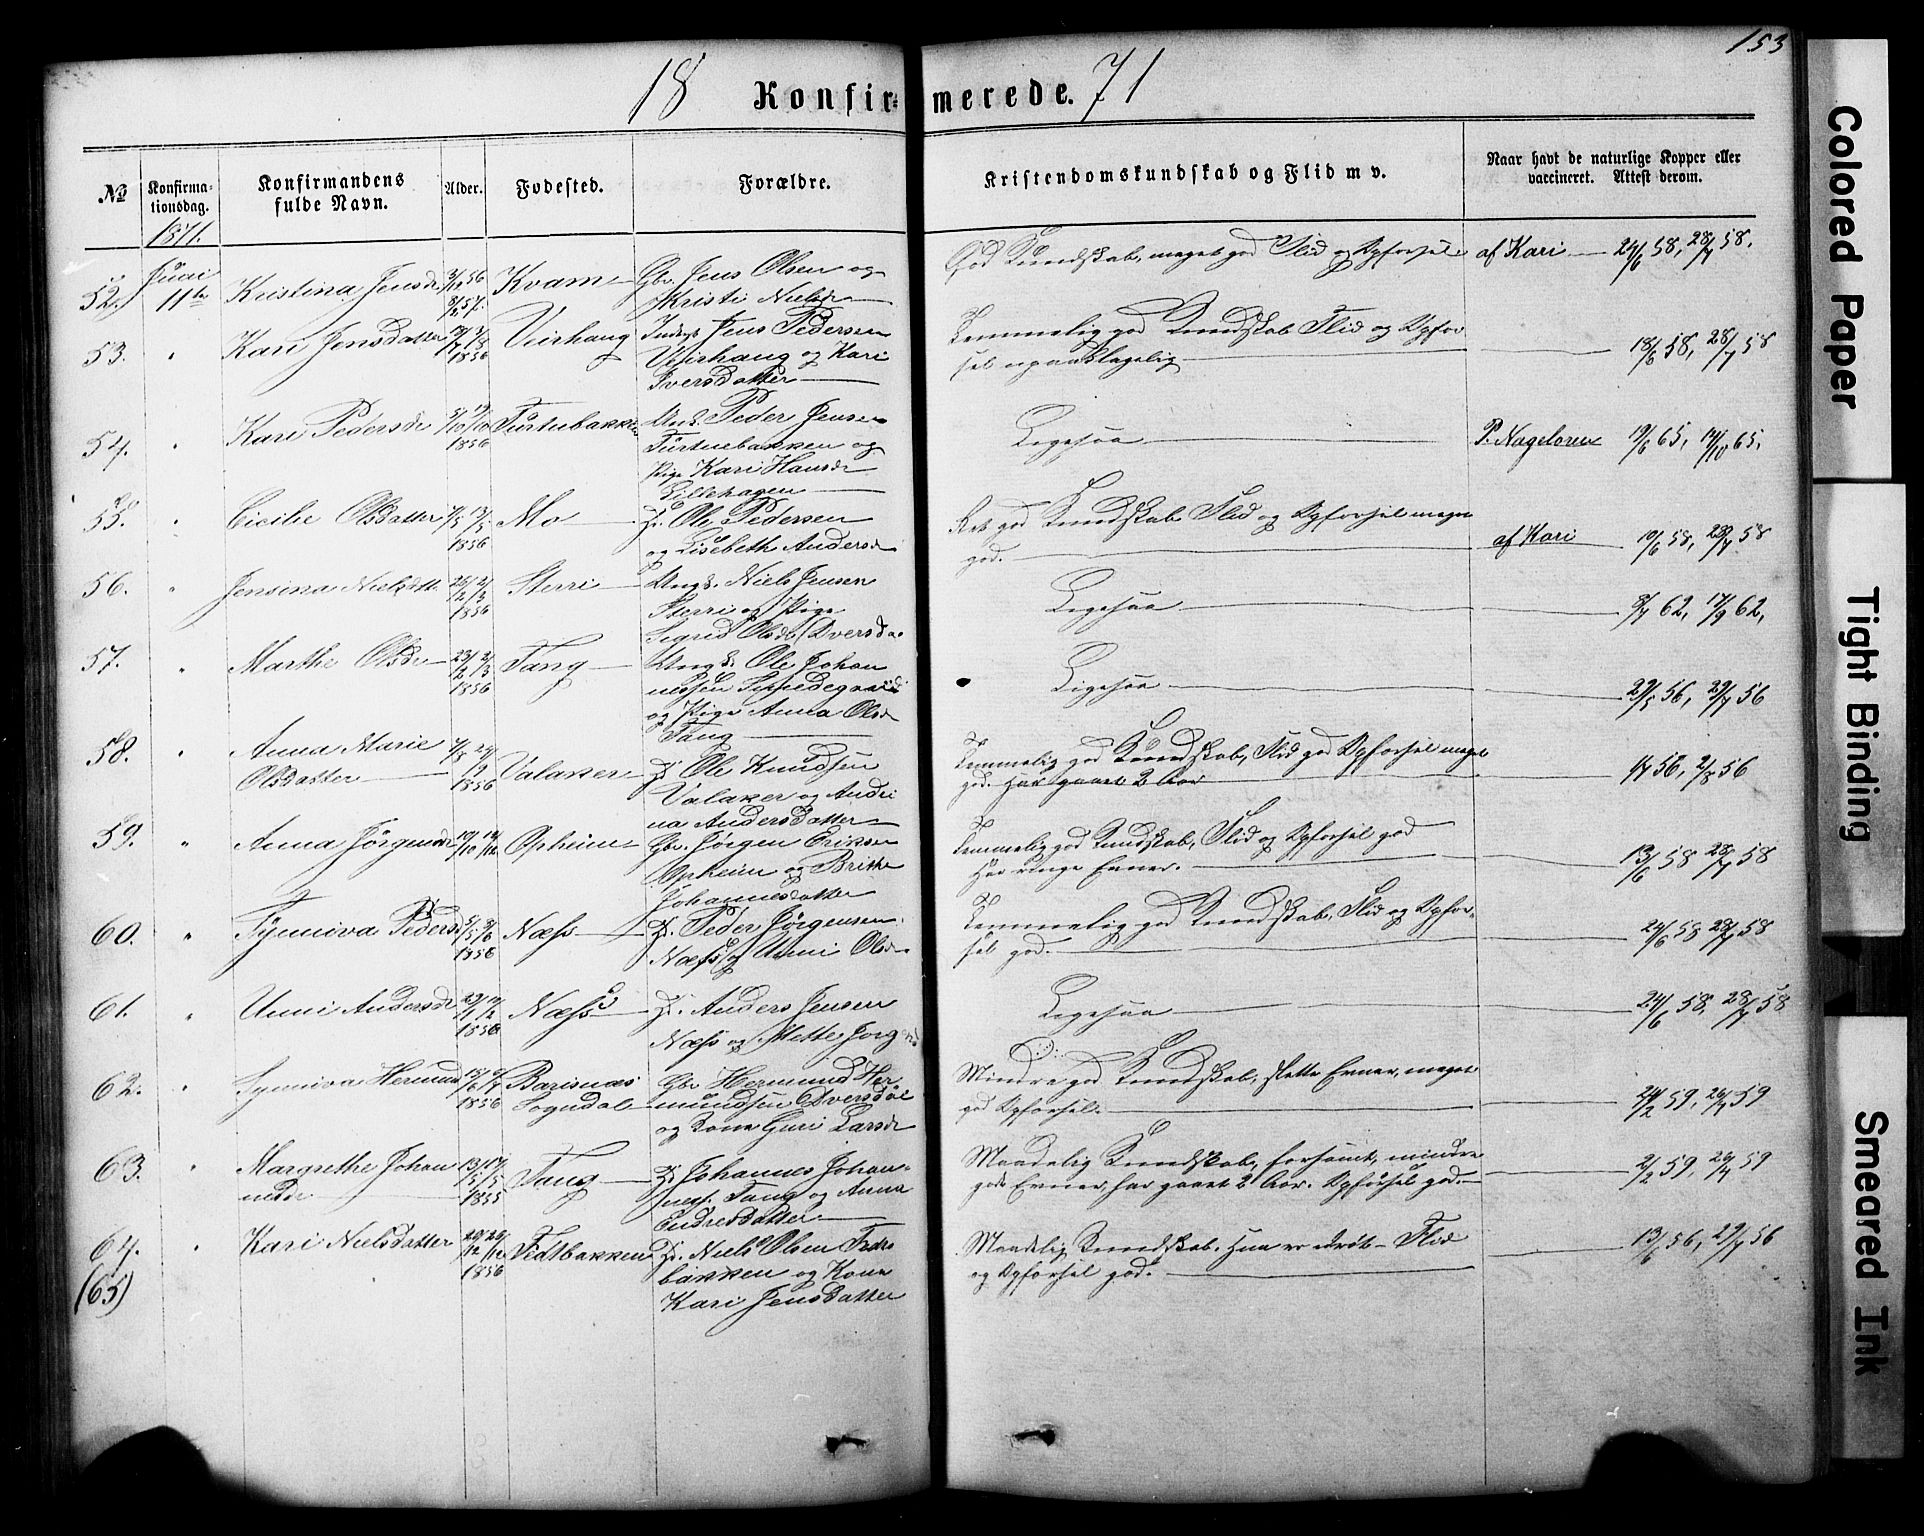 153
18 Konfir=merede. 71
№
Konfirma-
tionsdag.
Konfirmandens
fulde Navn.
Alder.
Fødested.
Forældre.
Kristendomskundskab og Flid m v.
Naar havt de naturlige Kopper eller
vaccineret. Attest derom.
1871.
52. Juni 11te Kristina Jensdr Kvam Gbr. Jens Olsen og
Kristi Nielsdr
God Kundskab, meget god Flid og Opførsel af Kari 24/6 58, 28/7 58.
53. " Kari Jensdatter 1856 Veirhaug Jens Pedersen
Veirhaug og Kari
Iversdatter
Temmelig god Kundskab Flid og Opfør
sel upaaklagelig 18/6 58, 28/7 58
54. " Kari Pedersdr 1856 Türtnebakken Ung. Peder Jensen
Türtnebakken og
Pige Kari Hansdr
Lillehagen
Ligesaa P. Nageløren 19/6 65, 14/10 65,
55. " Cicilie Olsdatter 1856 Mo Ole Pedersen
og Lisebeth Andersdr
Ret god Kundskab Flid og Opførsel meget
god. af Kari 10/6 58, 28/7 58
56. " Jensina Nielsdtr 1856 Sterri Ung. Niels Jensen
Sterri og Pige
Sigrid Olsdr Dversdal
Ligesaa 8/7 62, 17/9 62,
57. " Marthe Olsdr 1856 Fang Ung. Ole Johan
nessen
og Pige Anna Olsdr
Fang
Ligesaa 29/5 56, 29/7 56
58. " Anna Marie
Olsdatter 1856 Valaker Ole Knudsen
Valaker og Andri
na Andersdatter
Temmelig god Kundskab, Flid god Opførsel meget
god. Har gaaet 2 Aar 1/7 56, 2/8 56
59. " Anna Jørgensdr 10/10 14/12 Opheim Gbr. Jørgen Eriksen
Opheim og Brithe
Johannesdatter
Temmelig god Kundskab, Flid og Opførsel god
Har ringe Evner. 13/6 58 28/7 58
60. " Synneva Pedersd 1856 Næss Peder Jørgensen
Næss og Unni Olsdr
Temmelig god Kundskab, Flid og Opfør-
sel god. 24/6 58 28/7 58
61. " Unni Andersdr 1856 Næss Anders Jensen
Næss og Mette Jørg
Ligesaa 24/6 58, 28/7 58
62. " Synneva Hermund 1856 Barsnæs
Sogndal Gbr. Hermund Her
mundsen Dversdal
og Kone Guri Larsdr
Mindre god Kundskab, slette Evner, meget
god Opførsel. 24/2 59, 26/4 59
63. " Margrethe Johan
nesdr 13/5 17/5 1855 Fang Johannes Johan-
nes. Fang og Anna
Endresdatter
Maadelig Kundskab, forsømt, mindre
gode Evner, har gaaet 2 Aar. Opførsel god. 2/2 59, 26/4 59
64. " Kari Nielsdatter 1856 Fidtbakken Niels Olsen
bakken og Kone
Kari Jensdatter
Maadelig Kundskab. Hun er Flid
og Opførsel god. 13/6 56, 29/7 56
(65)
Colored Paper
Tight Binding
Smeared Ink